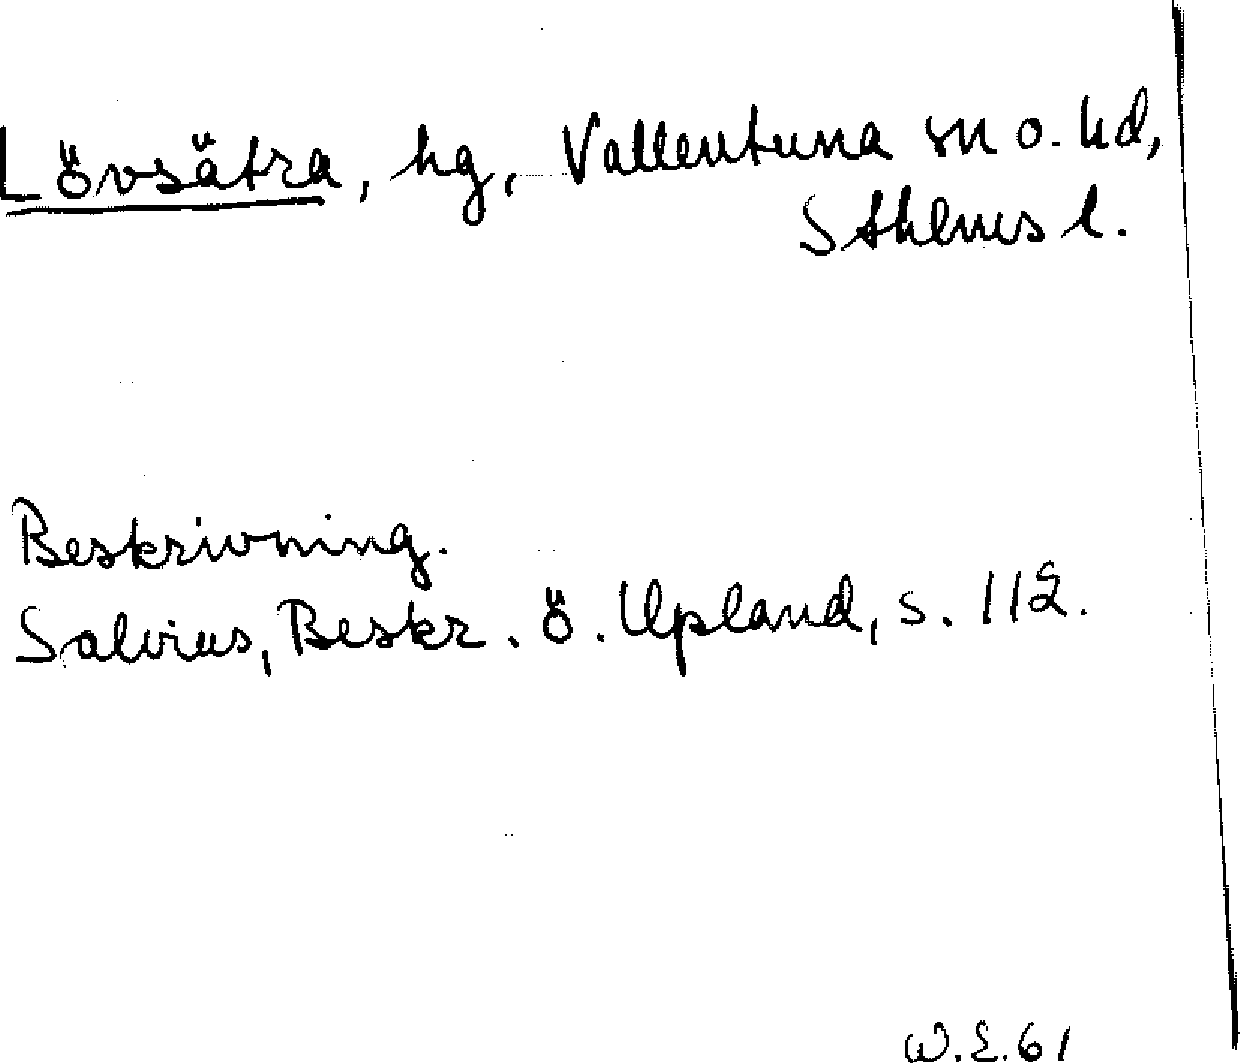 Lövsätra, hg, Vallentuna sn o. hd,
Sthlms l.
Beskrivning.
Salvius, Beskr. ö. Upland, s. 112.
W.E. 61